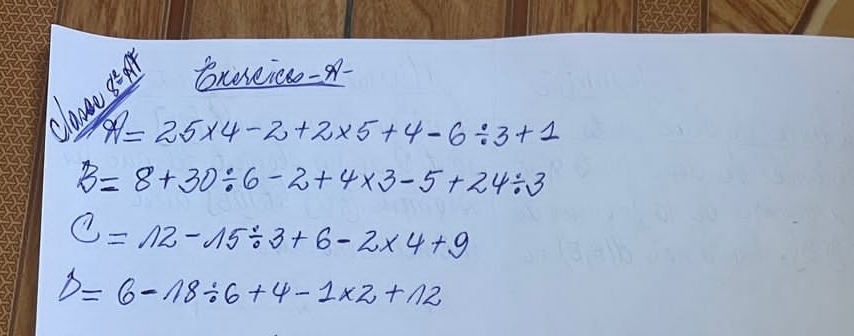 Classe 8e AF
Exercices-A-
A= 25x4-2+2x5+4-6÷3+1
B= 8+30÷6-2+4x3-5+24÷3
C= 12-15÷3+6-2x4+9
D= 6-18÷6+4-1x2+12